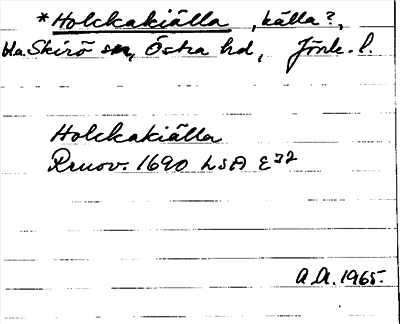 *Holckakiälla, källa?,
bl.a. Skirö sn, Östra hd, Jönk. l.
Holckakiälla
Renov. 1690 LSA E 72
A.A. 1965.